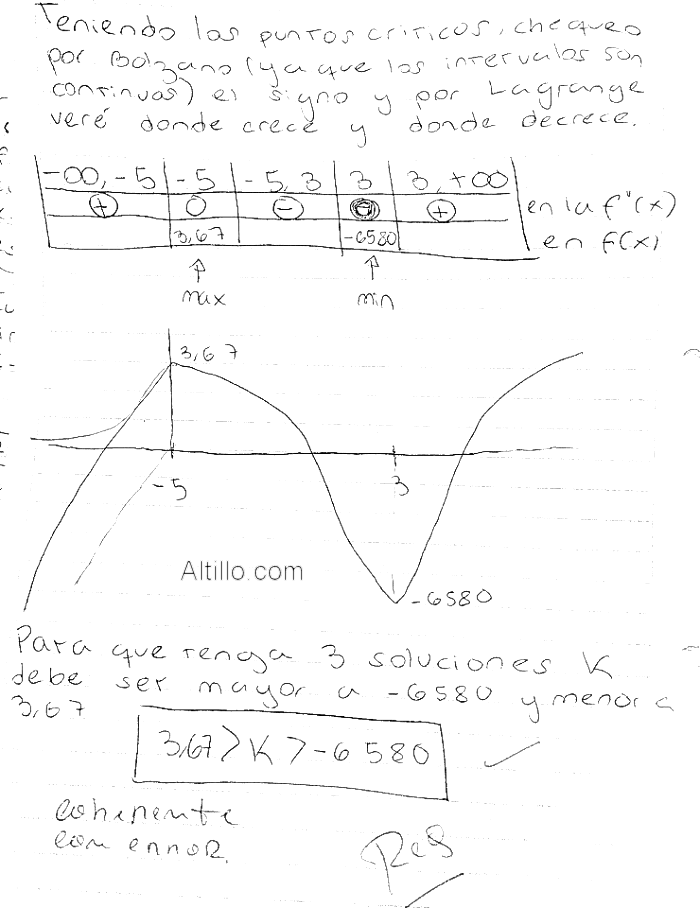 Teniendo los puntos criticos, chequeo
por Bolzano (ya que los intervalos son
continuos) el signo y por Lagrange
veré donde crece y donde decrece.
-∞, -5 | -5 | -5, 3 | 3 | 3, +∞
+ 0 - + en la f'(x)
3,67 -6580 en f(x)
↑ ↑
max min
3,67
-5 3
Altillo.com
-6580
Para que tenga 3 soluciones K
debe ser mayor a -6580 y menor a
3,67
3,67 > K > -6580 ✓
coherente
con error.